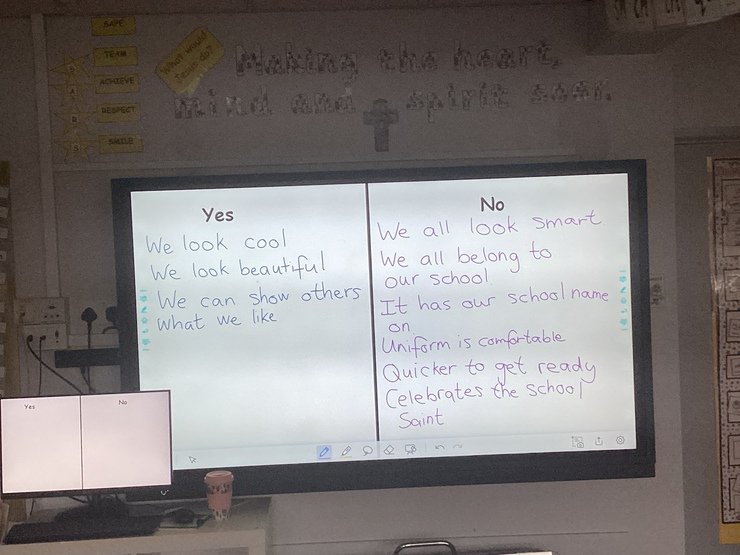 SAFE
TEAM
ACHIEVE
RESPECT
SMILE
S
T
A
R
S
What would
Jesus do?
Making the heart,
mind and spirit soar.
Yes
We look cool
We look beautiful
We can show others
what we like
No
We all look smart.
We all belong to
our school.
It has our school name
on
Uniform is comfortable
Quicker to get ready
Celebrates the school
Saint
Yes
No